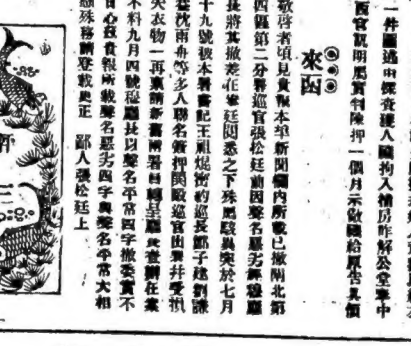 一件圖逃由探查獲人贓拘入捕房昨解公堂
西官訊明屬實判押一個月示儆贓給原告具領
來函
敬啓者頃見貴報本埠新聞欄內所載已撤閘北第
四區第二分署巡官張松廷前因聲名惡劣經警廳
長將其撤差在案廷閱悉之下殊屬駭異突於七月
十九號被本署書記王祖焜密約巡長鄒子建劉謙
益沈雨舟等多人聯名簽押誣廷巡官出缺并受損
失衣物一再稟請新舊兩署員轉呈廳長查辦在案
不料九月四號廳長以聲名平常四字撤委實不
甘心茲貴報所載聲名惡劣四字與聲名平常大相
懸殊務請登載更正 鄙人張松廷上